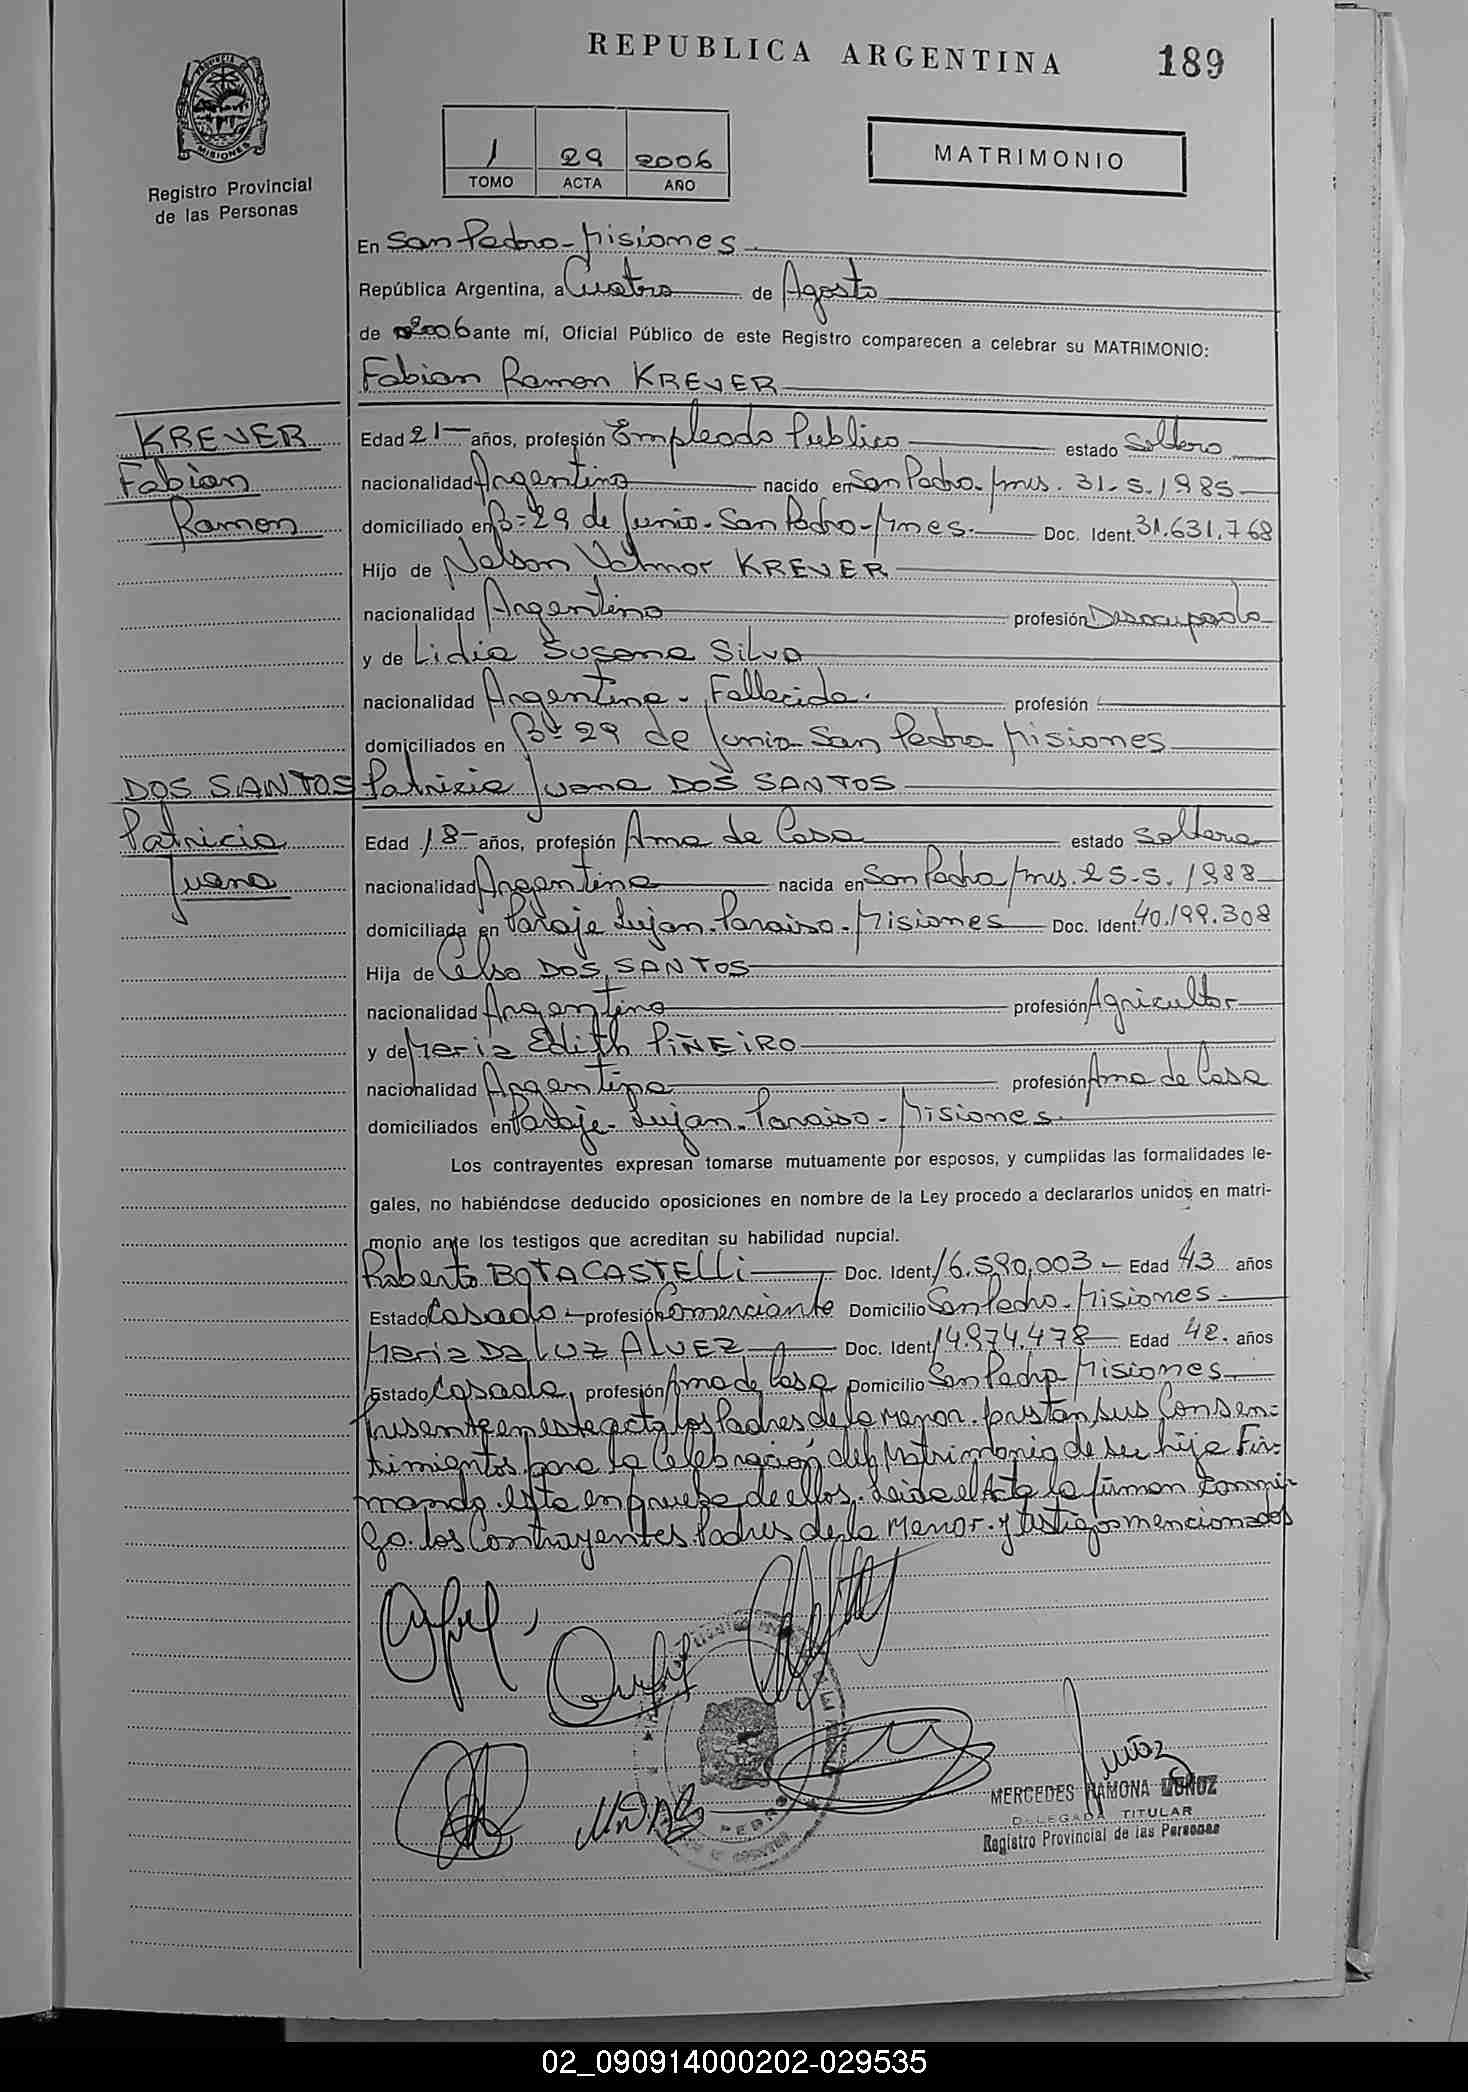 REPUBLICA ARGENTINA
189
PROVINCIA DE
MISIONES
Registro Provincial
de las Personas
1 29 2006
TOMO ACTA AÑO
MATRIMONIO
En San Pedro - Misiones
República Argentina, a Cuatro de Agosto
de 2006 ante mí, Oficial Público de este Registro comparecen a celebrar su MATRIMONIO:
Fabian Ramon KREVER
KREVER
Fabian
Ramon
Edad 21 años, profesión Empleado Publico estado Soltero
nacionalidad Argentino nacido en San Pedro - Mnes. 31.5.1985
domiciliado en Bº 29 de Junio - San Pedro - Mnes. Doc. Ident. 31.631.768
Hijo de Nelson Valmor KREVER
nacionalidad Argentino profesión Desocupado
y de Lidia Susana Silva
nacionalidad Argentina - Fallecida. profesión
domiciliados en Bº 29 de Junio San Pedro Misiones
DOS SANTOS
Patricia
Juana
Patricia Juana DOS SANTOS
Edad 18 años, profesión Ama de Casa estado Soltera
nacionalidad Argentina nacida en San Pedro Mnes. 25.5.1988
domiciliada en Paraje Lujan - Paraiso - Misiones Doc. Ident. 40.199.308
Hija de Celso DOS SANTOS
nacionalidad Argentino profesión Agricultor
y de Maria Edith PIÑEIRO
nacionalidad Argentina profesión Ama de Casa
domiciliados en Paraje - Lujan - Paraiso - Misiones
Los contrayentes expresan tomarse mutuamente por esposos, y cumplidas las formalidades le-
gales, no habiéndose deducido oposiciones en nombre de la Ley procedo a declararlos unidos en matri-
monio ante los testigos que acreditan su habilidad nupcial.
Roberto BOTACASTELLi Doc. Ident 16.590.003 - Edad 43 años
Estado Casado - profesión Comerciante Domicilio San Pedro - Misiones
Maria Da Luz ALVEZ Doc. Ident 14.974.478 Edad 42 años
Estado Casada, profesión Ama de Casa Domicilio San Pedro Misiones
Presente en este acto los Padres de la Menor. prestan sus Consen-
timientos para la Celebración del Matrimonio de su hija Fir-
mando esta en prueba de ellos. Leida el Acta la firman conmi-
go. los Contrayentes. Padres de la Menor. y testigos mencionados
Muñoz
MERCEDES RAMONA MUÑOZ
DELEGADA TITULAR
Registro Provincial de las Personas
02_090914000202-029535